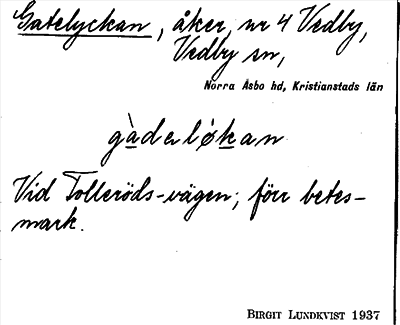 Gatelyckan, åker, nr 4 Vedby,
Vedby sn,
Norra Åsbo hd, Kristianstads län
gàdelø̀kan
Vid Tolleröds-vägen; förr betes-
mark.
BIRGIT LUNDKVIST 1937